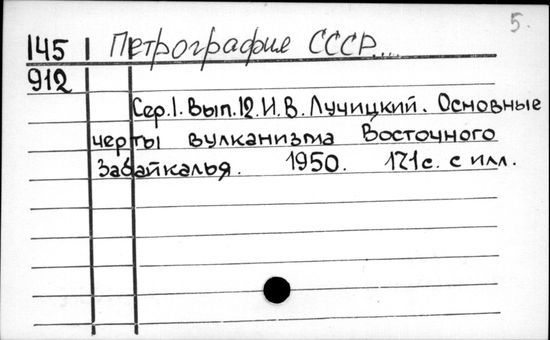 5.
145 Петрография СССР...
912
Сер.1. Вып.12. И.В. Лучицкий. Основные
черты вулканизма Восточного
Забайкалья. 1950. 171с. с илл.